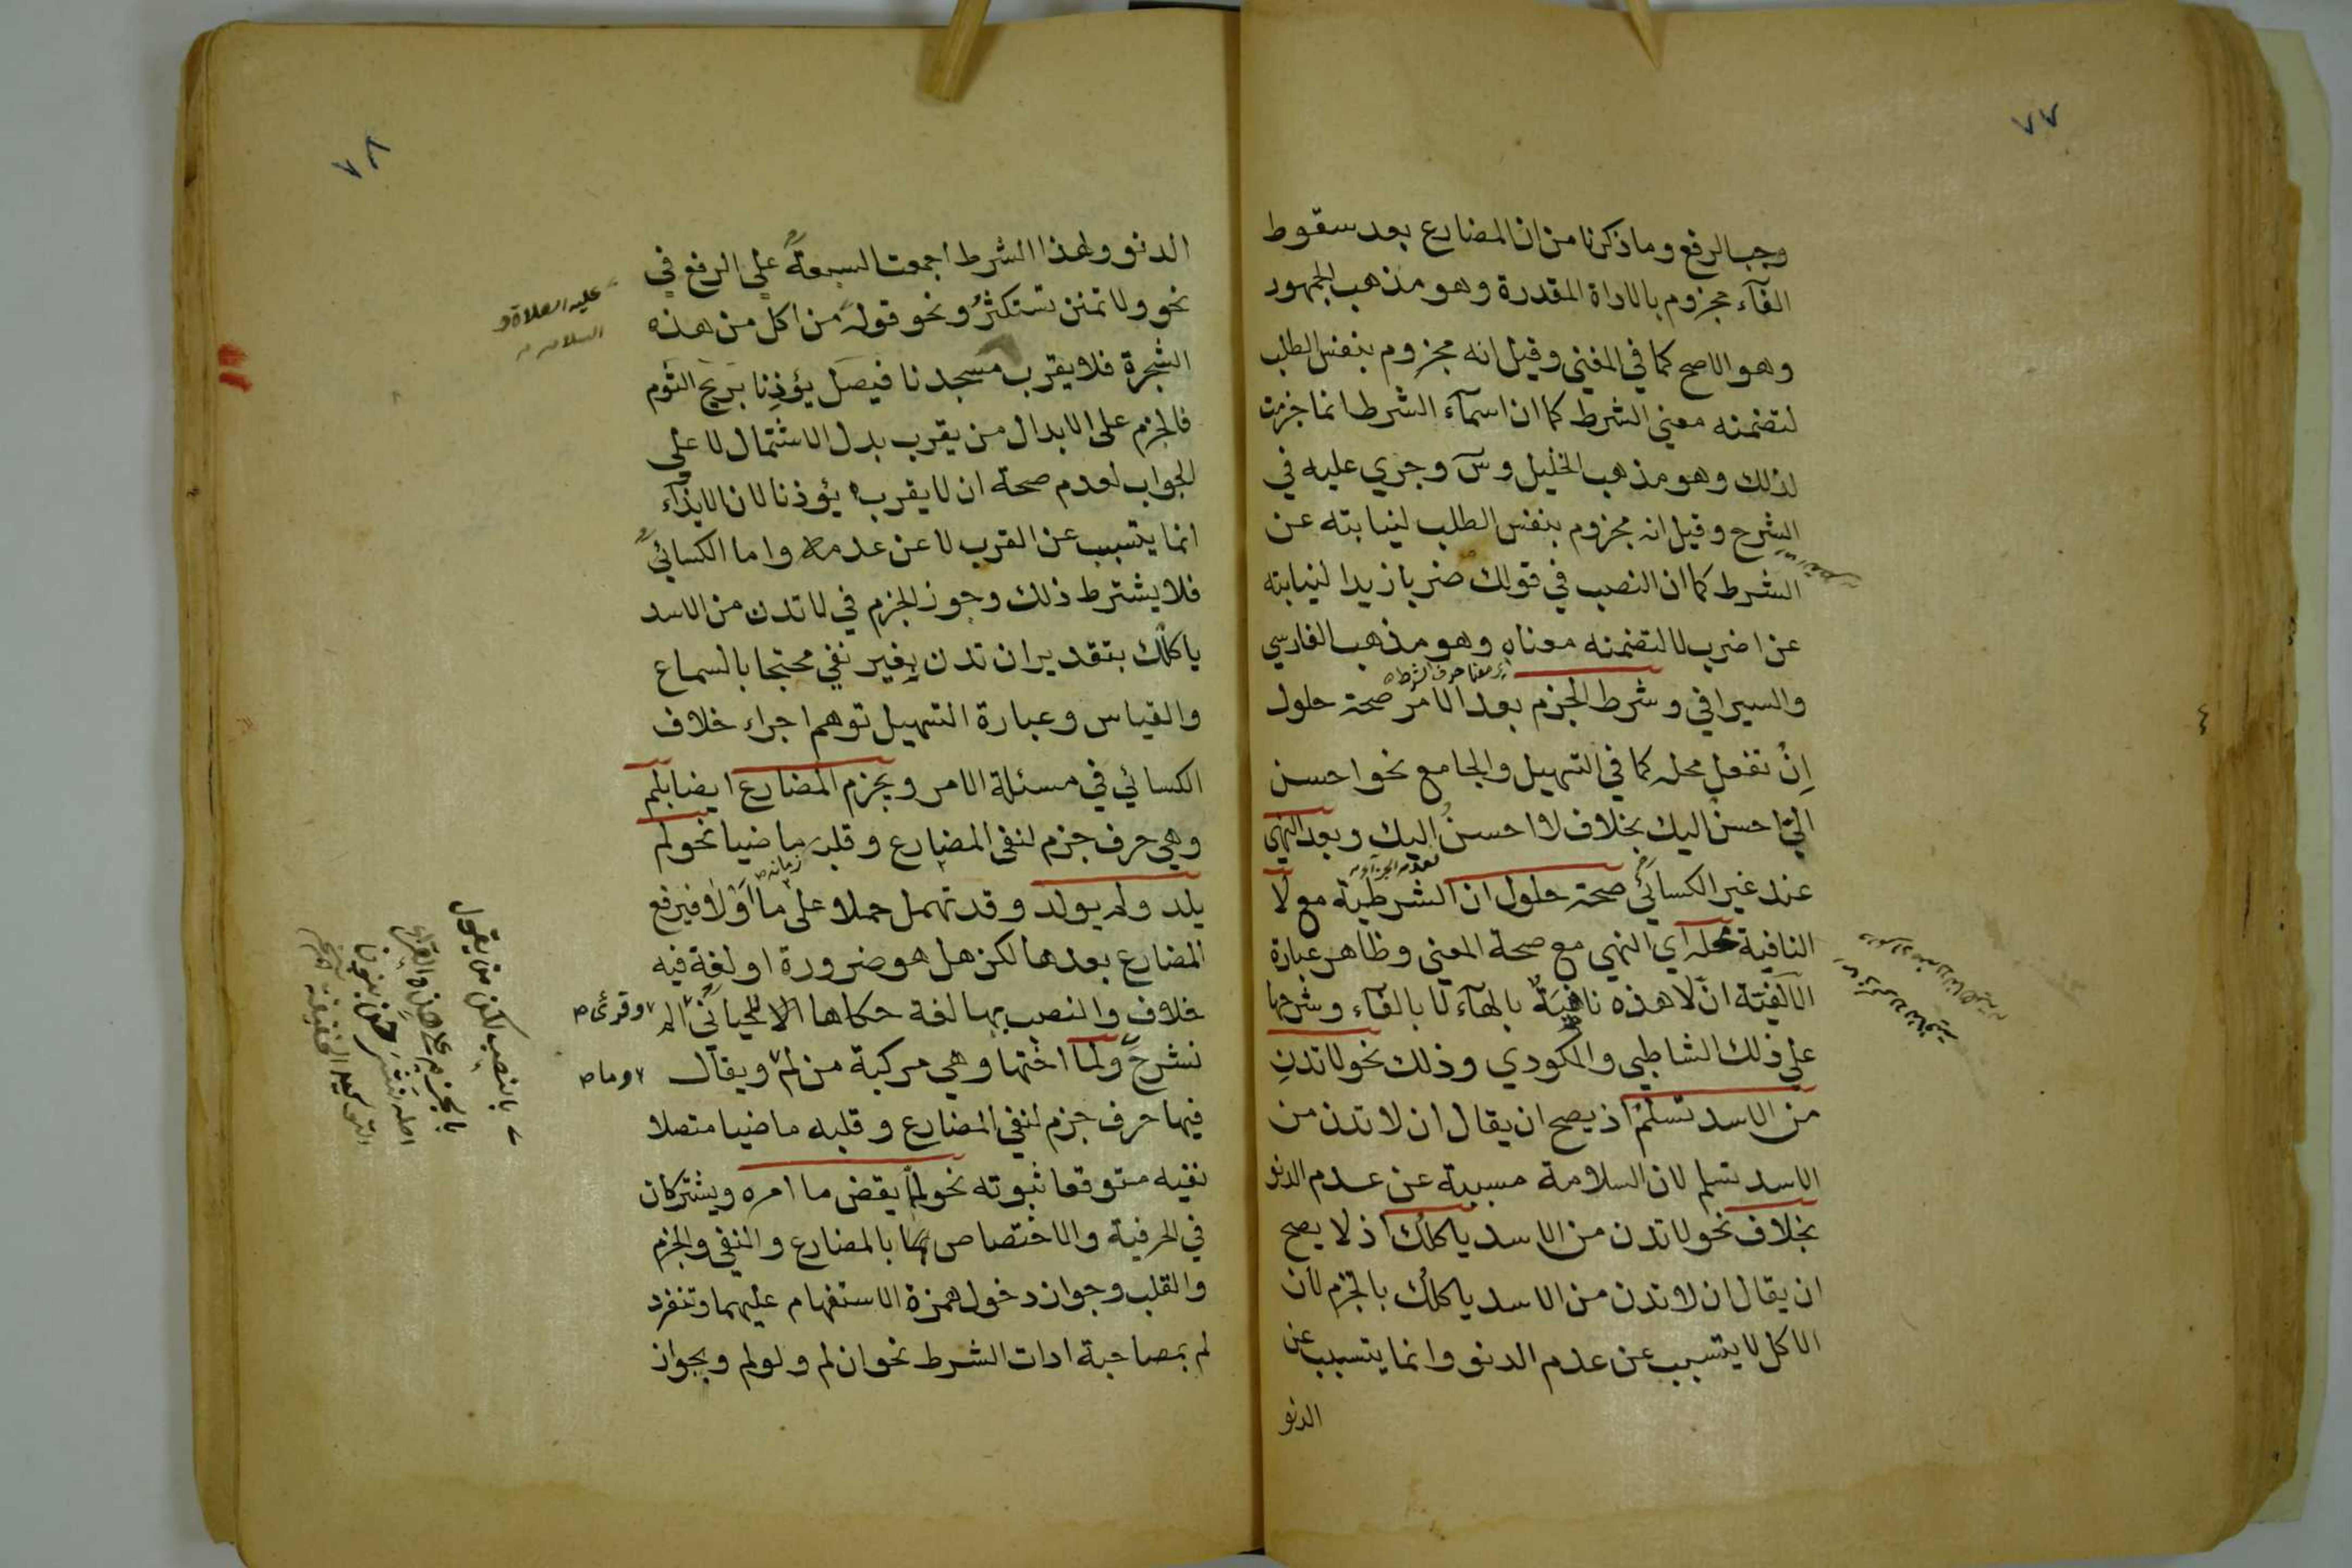 ٧٧
وجب الرفع وما ذكرنا من ان المضارع بعد سقوط
الفآء مجزوم بالاداة المقدرة وهو مذهب الجمهور
وهو الاصح كما في المغني وقيل انه مجزوم بنفس الطلب
لتضمنه معني الشرط كما ان اسمآء الشرط انما جزمت
لذلك وهو مذهب الخليل وسٓ وجري عليه في
الشرح وقيل انه مجزوم بنفس الطلب لنيابته عن
الشرط كما ان النصب في قولك ضربا زيدا لنيابته
عن اضرب لا لتضمنه معناه وهو مذهب الفارسي
والسيرافي وشرط الجزم بعد الامر صحة حلول
اِنْ تفعل محله كما في التسهيل والجامع نحو احسن
اليّ احسنْ اليك بخلاف لا احسنُ اليك وبعد النهي
عند غير الكسائي صحة حلول ان الشرطية مع لا
النافية محله اي النهي مع صحة المعني وظاهر عبارة
الالفية انّ لا هذه ناهية بالهآء لا بالفآء وشرحها
علي ذلك الشاطبي والمكودي وذلك نحو لا تدنِ
من الاسد تسلمْ اذ يصح ان يقال ان لا تدن من
الاسد تسلم لان السلامة مسببة عن عدم الدنو
بخلاف نحو لا تدن من الاسد ياكلك اذ لا يصح
ان يقال ان لا تدن من الاسد ياكلك بالجزم لان
الاكل لا يتسبب عن عدم الدنو وانما يتسبب عن
الدنو
٧٨
الدنو ولهذا الشرط اجمعت السبعة علي الرفع في
نحو ولا تمنن تستكثرُ ونحو قوله من اكل من هذه
عليه الصلاة و
السلام
الشجرة فلا يقرب مسجدنا فيصل يؤذِنا بريح الثوم
فالجزم على الابدال من يقرب بدل الاشتمال لا علي
الجواب لعدم صحة ان لا يقرب يؤذنا لان الايذآء
انما يتسبب عن القرب لا عن عدمه واما الكسائي
فلا يشترط ذلك وجوز الجزم في لا تدن من الاسد
ياكلك بتقدير ان تدن بغير نفي محتجا بالسماع
والقياس وعبارة التسهيل توهم اجراء خلاف
الكسائي في مسئلة الامر ويجزم المضارع ايضا بلم
وهي حرف جزم لنفي المضارع وقلبه ماضيا نحو لم
يلد ولم يولد وقد تهمل حملا على ما او لا فيرفع
المضارع بعدها لكن هل هو ضرورة او لغة فيه
خلاف والنصب بها لغة حكاها اللحياني الم
وقرئ
نشرح ولما اختها وهي مركبة من لم ويقال
وما
فيها حرف جزم لنفي المضارع وقلبه ماضيا متصلا
نفيه متوقعا ثبوته نحو لمّا يقض ما امره ويشتركان
في الحرفية والاختصاص بالمضارع والنفي والجزم
والقلب وجواز دخول همزة الاستفهام عليهما وتنفرد
لم بمصاحبة ادات الشرط نحو ان لم ولو لم وبجواز